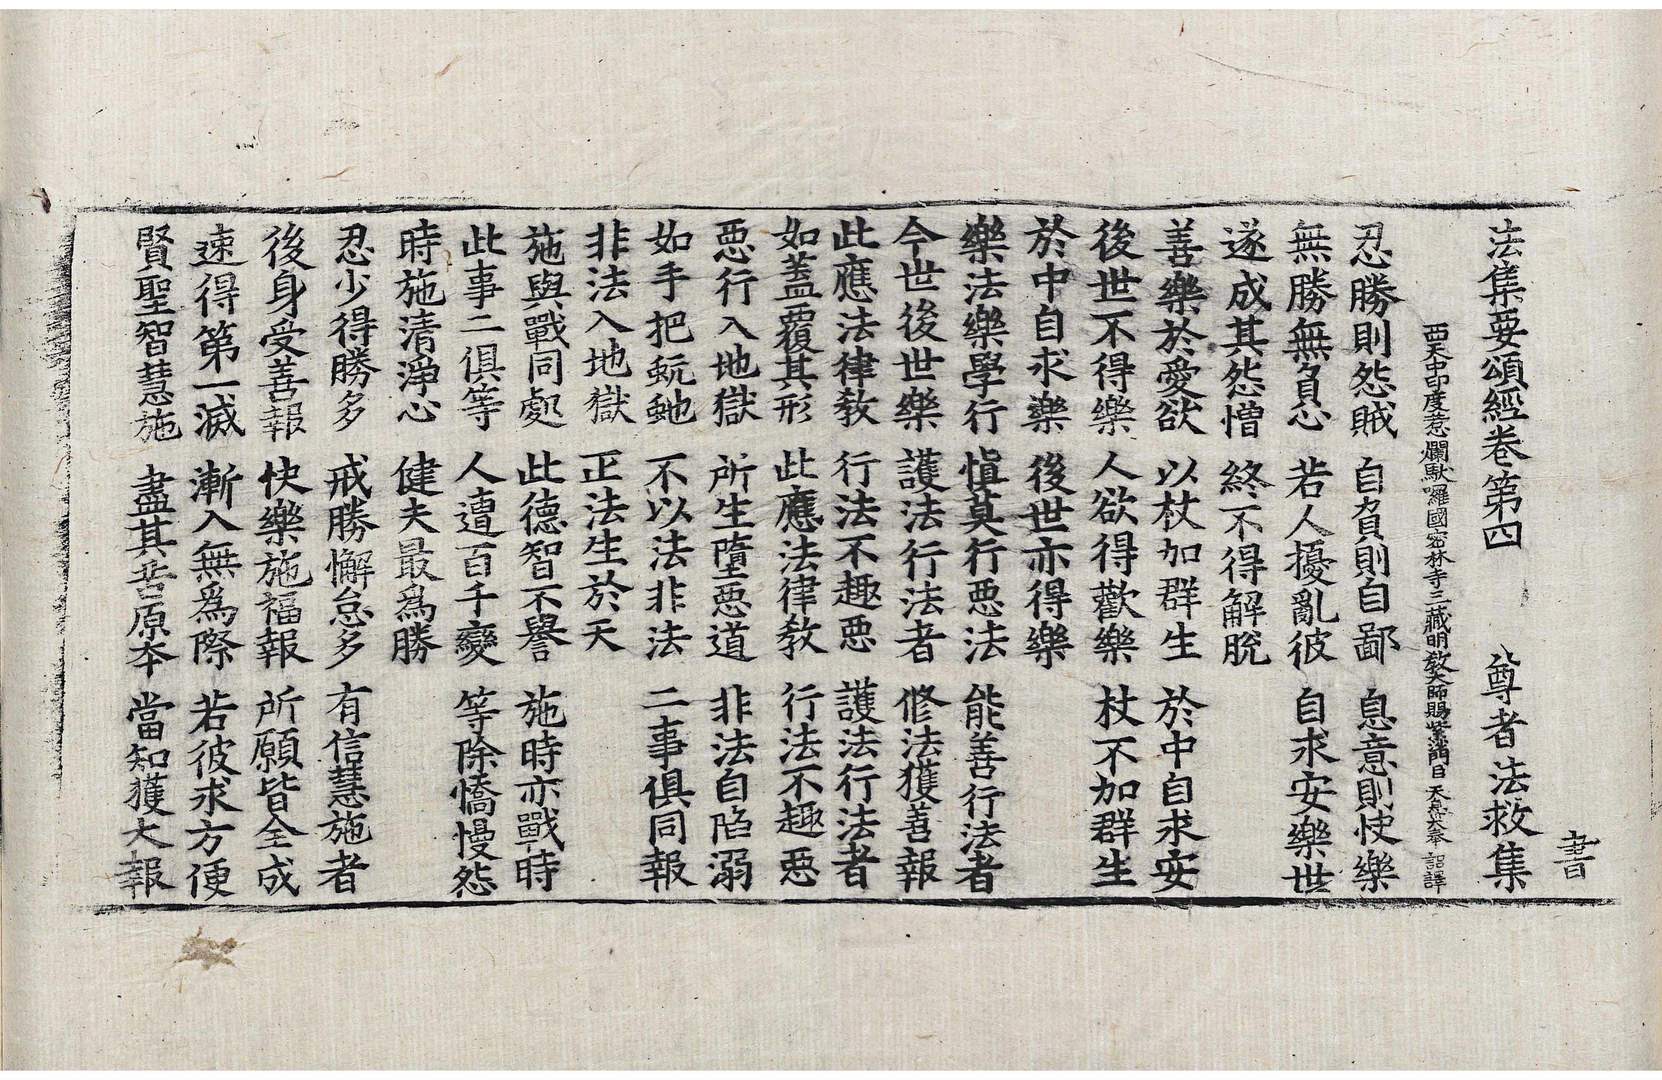 書
法集要頌經卷第四 尊者法救集
西天中印度惹爛馱囉國密林寺三藏明教大師賜紫沙門臣天息災奉 詔譯
忍勝則怨賊 自負則自鄙 息意則快樂
無勝無負心 若人擾亂彼 自求安樂世
遂成其怨憎 終不得解脫
善樂於愛欲 以杖加群生 於中自求安
後世不得樂 人欲得歡樂 杖不加群生
於中自求樂 後世亦得樂
樂法樂學行 慎莫行惡法 能善行法者
今世後世樂 護法行法者 修法獲善報
此應法律教 行法不趣惡 護法行法者
如蓋覆其形 此應法律教 行法不趣惡
惡行入地獄 所生墮惡道 非法自陷溺
如手把蚖虵 不以法非法 二事俱同報
非法入地獄 正法生於天
施與戰同處 此德智不譽 施時亦戰時
此事二俱等 人遭百千變 等除憍慢怨
時施清淨心 健夫最爲勝
忍少得勝多 戒勝懈怠多 有信慧施者
後身受善報 快樂施福報 所願皆全成
速得第一滅 漸入無爲際 若彼求方便
賢聖智慧施 盡其苦原本 當知獲大報